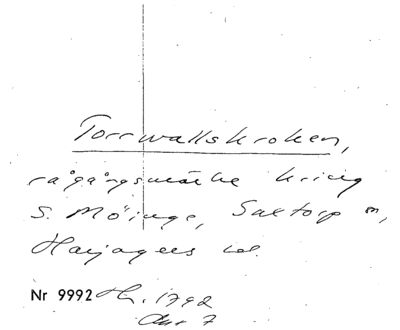 Torrwallskroken,
rågångsmärke kring
S. Möinge, Saxtorp sn,
Harjagers hd.
Nr 9992 Hh. 1792
Akt 7